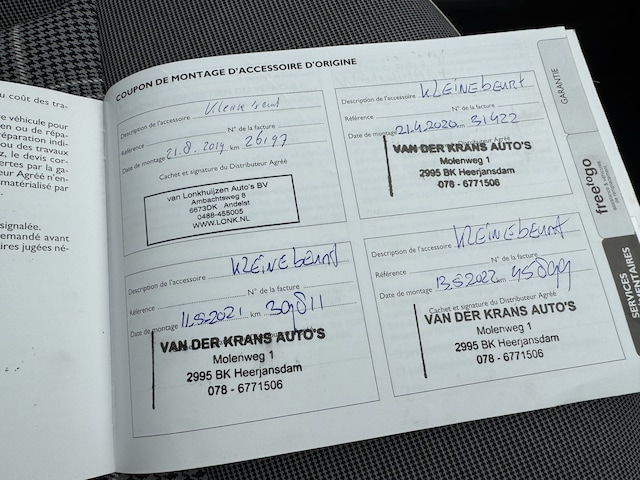 u coût des tra-
e véhicule pour
en ou de répa-
éparation indi-
ou des travaux
z, le devis cor-
ertes par la ga-
eur Agréé n'en-
matérialisé par
signalée.
emandé avant
ires jugées né-
COUPON DE MONTAGE D'ACCESSOIRE D'ORIGINE
Description de l'accessoire Kleine beurt
Référence N° de la facture
Date de montage 21-8-2019 km 26197
Cachet et signature du Distributeur Agréé
van Lonkhuijzen Auto's BV
Ambachtsweg 8
6673DK Andelst
0488-455005
WWW.LONK.NL
Description de l'accessoire KLEINE beurt
Référence N° de la facture
Date de montage 21.4.2020 km 31422
VAN DER KRANS AUTO'S
Molenweg 1
2995 BK Heerjansdam
078 - 6771506
Description de l'accessoire KLEINE beurt
Référence N° de la facture
Date de montage 11.5.2021 km 39811
VAN DER KRANS AUTO'S
Molenweg 1
2995 BK Heerjansdam
078 - 6771506
Description de l'accessoire KLEINE beurt
Référence N° de la facture
Date de montage 13.5.2022 km 45899
Cachet et signature du Distributeur Agréé
VAN DER KRANS AUTO'S
Molenweg 1
2995 BK Heerjansdam
078 - 6771506
GARANTIE
free to go
SERVICES